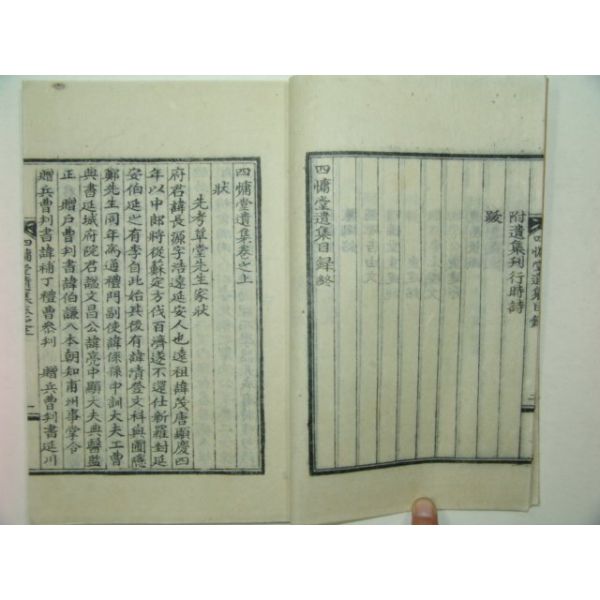 附遺集刊行時詩
跋
四慵堂遺集目錄終
四慵堂遺集卷之上
狀
先考草堂先生家狀
府君諱長源字浩遠延安人也遠祖諱茂唐顯慶四
年以中郎將從蘇定方伐百濟遂不還仕新羅封延
安伯延之有李自此始其後有諱淸登文科與圃隱
鄭先生同年爲通禮門副使諱係孫中訓大夫工曹
典書延城府院君諡文昌公諱亮中顯大夫典醫監
正 贈戶曹判書諱伯謙入本朝知甫州事掌令
贈兵曹判書諱補丁禮曹參判 贈兵曹判書延川